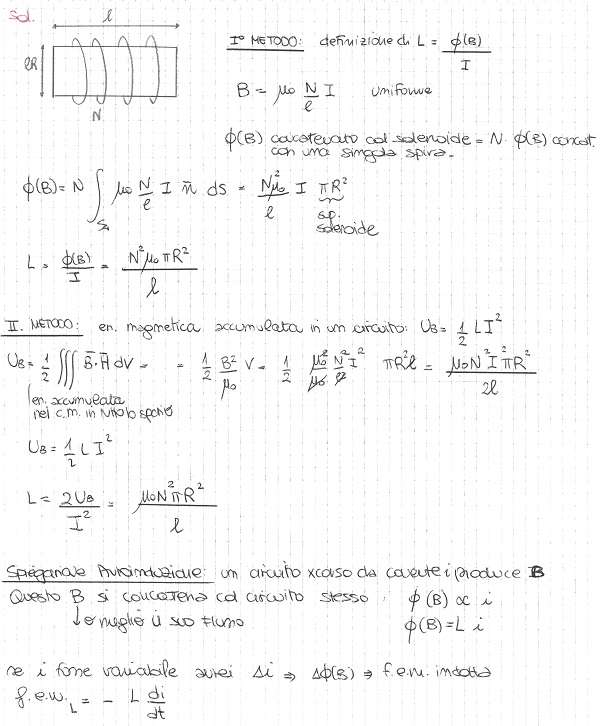 Sol.
l
2R
N
I° METODO: definizione di L = ϕ(B)/I
B = μ₀ N/l I uniforme
ϕ(B) concatenato col solenoide = N· ϕ(B) concat.
con una singola spira.
ϕ(B) = N ∫ μ₀ N/l I n̄ dS = N²μ₀/l I πR²
sp.
solenoide
L = ϕ(B)/I = N²μ₀πR²/l
II. METODO: en. magnetica accumulata in un circuito: U_B = 1/2 LI²
U_B = 1/2 ∭ B̄·H̄ dV = = 1/2 B²/μ₀ V = 1/2 μ₀²/μ₀ N²/l² I² πR²l = μ₀N²I²πR²/2l
en. accumulata
nel c.m. in tutto lo spazio
U_B = 1/2 LI²
L = 2U_B/I² = μ₀N²πR²/l
Autoinduzione: un circuito xcorso da corrente i produce B
Questo B si concatena col circuito stesso, ϕ(B) ∝ i
o meglio il suo flusso ϕ(B) = L i
se i fosse variabile avrei Δi ⇒ Δϕ(B) ⇒ f.e.m. indotta
f.e.m._L = - L di/dt